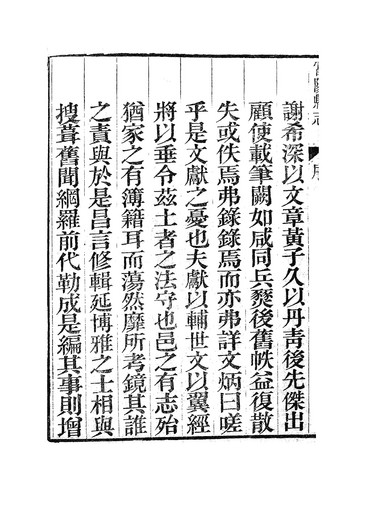 謝希深以文章黃子久以丹靑後先傑出
顧使載筆闕如咸同兵燹後舊帙益復散
失或佚焉弗錄錄焉而亦弗詳文炳曰嗟
乎是文獻之憂也夫獻以輔世文以翼經
將以垂令茲土者之法守也邑之有志殆
猶家之有簿籍耳而蕩然靡所考鏡其誰
之責與於是昌言修輯延博雅之士相與
搜葺舊聞網羅前代勒成是編其事則增